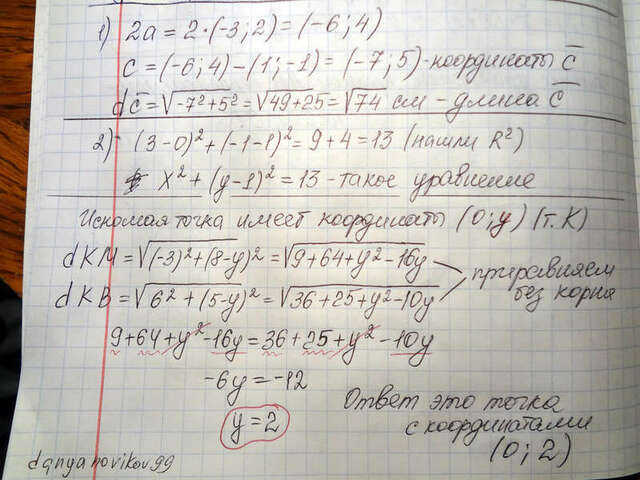 1) 2a = 2·(-3;2) = (-6;4)
c = (-6;4)-(1;-1) = (-7;5)-координаты c̅
dc̅ = √-7²+5² = √49+25 = √74 см - длина c̅
2) (3-0)²+(-1-1)² = 9+4 = 13 (нашли R²)
x²+(y-1)² = 13 - такое уравнение
Искомая точка имеет координаты (0;y) (т.K)
dKM = √(-3)²+(8-y)² = √9+64+y²-16y
dKB = √6²+(5-y)² = √36+25+y²-10y
приравняем
без корня
9+64+y²-16y=36+25+y²-10y
-6y=-12
y=2
Ответ это точка
с координатами
(0;2)
danyanovikov99